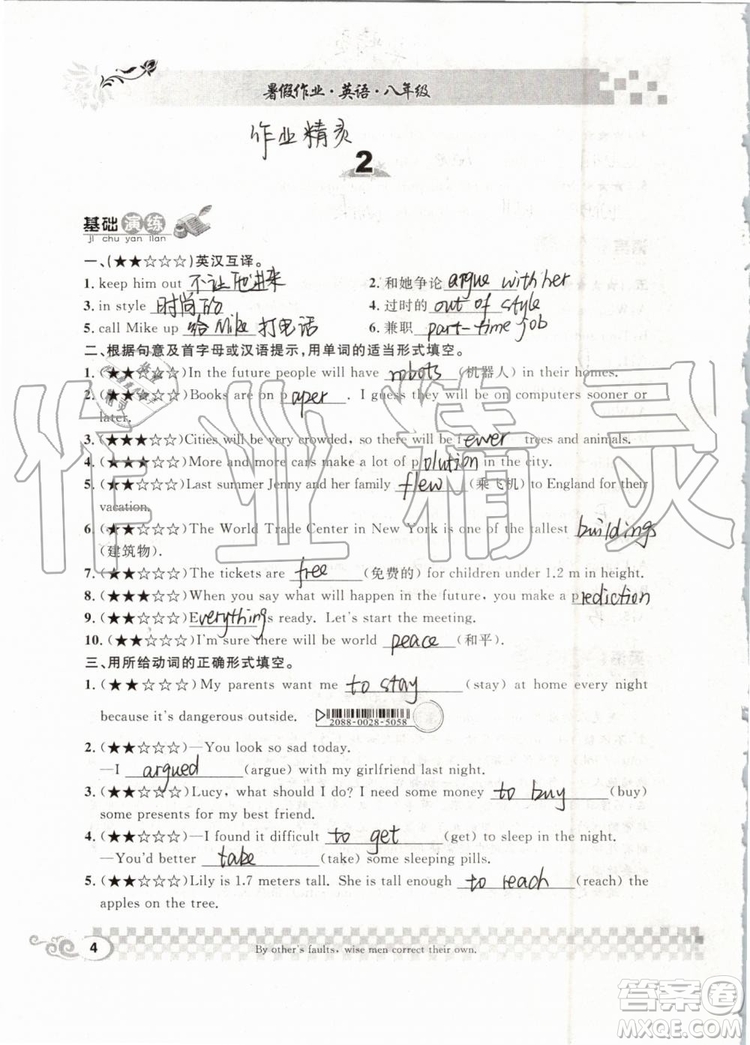 暑假作业·英语·八年级
作业精灵
2
基础演练
ji chu yan lian
一、(★★☆☆☆)英汉互译。
1. keep him out 不让他进来 2. 和她争论 argue with her
3. in style 时尚的 4. 过时的 out of style
5. call Mike up 给Mike打电话 6. 兼职 part-time job
二、根据句意及首字母或汉语提示,用单词的适当形式填空。
1. (★★☆☆☆)In the future people will have robots (机器人) in their homes.
2. (★★★☆☆)Books are on paper. I guess they will be on computers sooner or
later.
3. (★★★☆☆)Cities will be very crowded, so there will be fewer trees and animals.
4. (★★★☆☆)More and more cars make a lot of polution in the city.
5. (★★★☆☆)Last summer Jenny and her family flew (乘飞机) to England for their
vacation.
6. (★★☆☆☆)The World Trade Center in New York is one of the tallest buildings
(建筑物).
7. (★★☆☆☆)The tickets are free (免费的) for children under 1.2 m in height.
8. (★★★☆☆)When you say what will happen in the future, you make a prediction
9. (★★☆☆☆)Everything is ready. Let's start the meeting.
10. (★★☆☆☆)I'm sure there will be world peace (和平).
三、用所给动词的正确形式填空。
1. (★★☆☆☆)My parents want me to stay (stay) at home every night
because it's dangerous outside.
2088-0028-5058
2. (★★☆☆☆)—You look so sad today.
—I argued (argue) with my girlfriend last night.
3. (★★☆☆☆)Lucy, what should I do? I need some money to buy (buy)
some presents for my best friend.
4. (★★☆☆☆)—I found it difficult to get (get) to sleep in the night.
—You'd better take (take) some sleeping pills.
5. (★★☆☆☆)Lily is 1.7 meters tall. She is tall enough to reach (reach) the
apples on the tree.
4
By other's faults, wise men correct their own.
作业精灵
答案圈
MXQE.COM